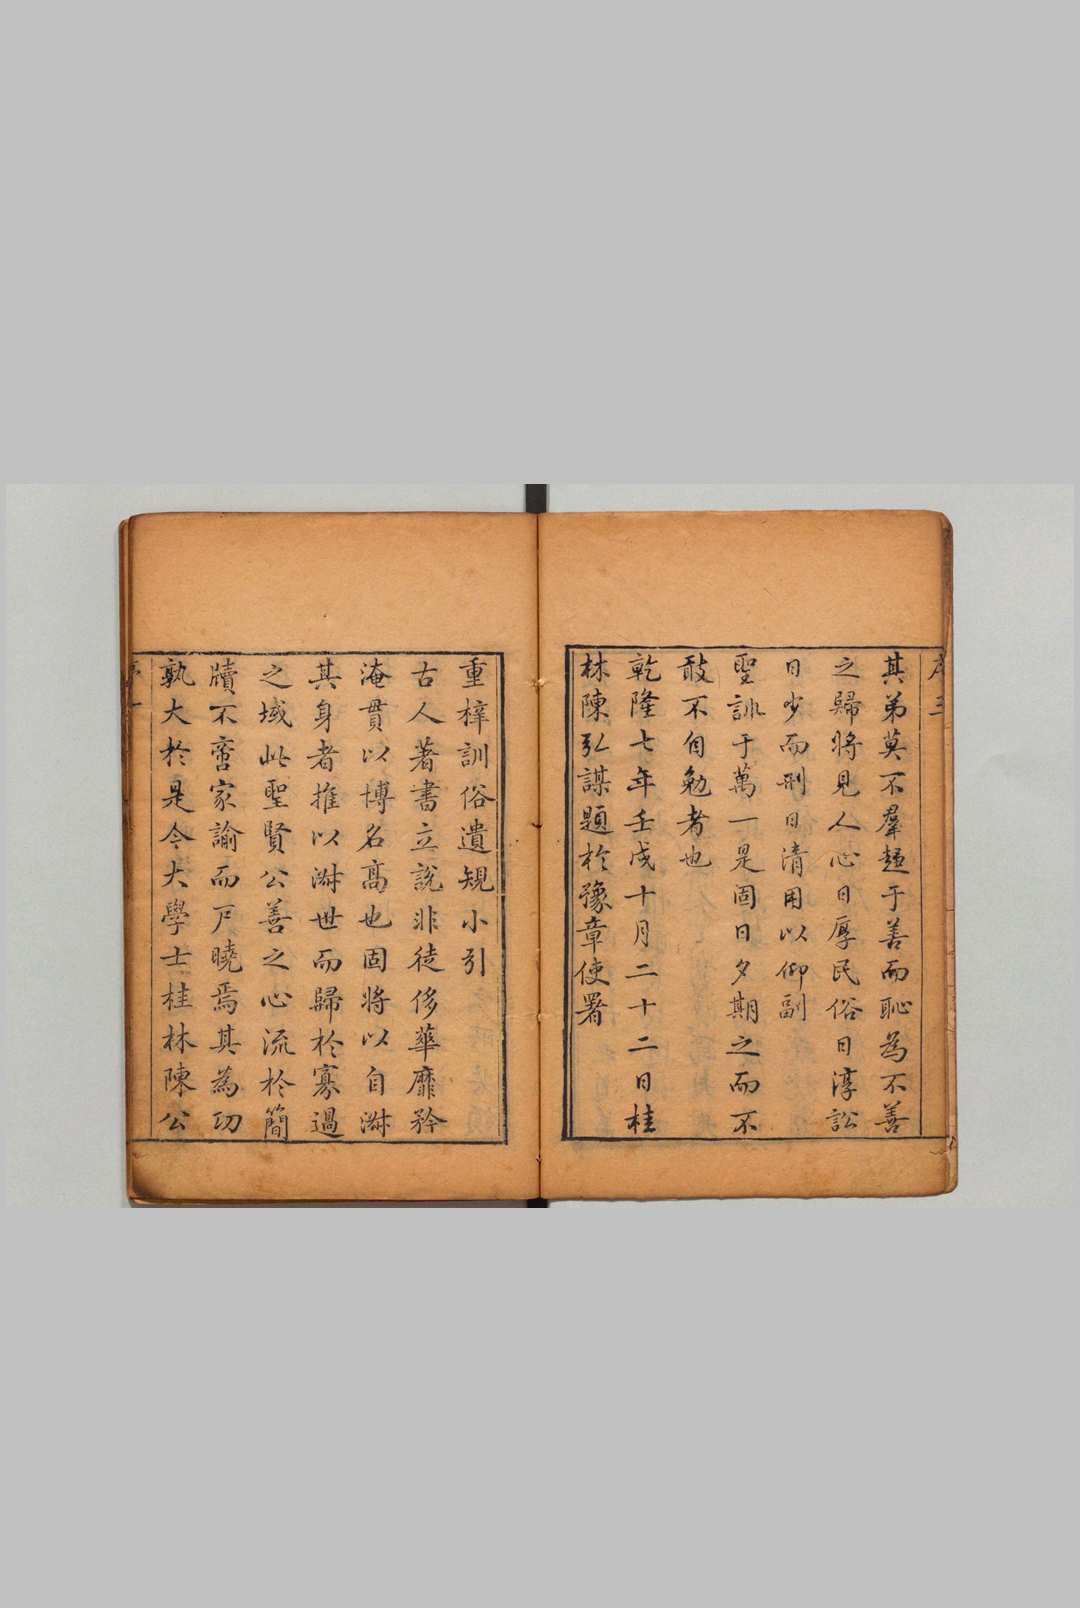 其弟莫不羣趨于善而恥為不善
之歸將見人心日厚民俗日淳訟
日少而刑日清用以仰副
聖訓于萬一是固日夕期之而不
敢不自勉者也
乾隆七年壬戌十月二十二日桂
林陳弘謀題於豫章使署
重梓訓俗遺規小引
古人著書立說非徒侈華靡矜
淹貫以博名高也固將以自淑
其身者推以淑世而歸於寡過
之域此聖賢公善之心流於簡
牘不啻家諭而戶曉焉其為功
孰大於是今大學士桂林陳公